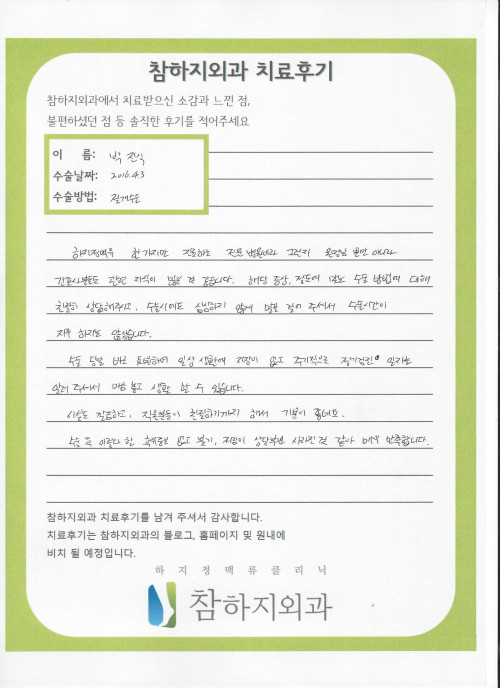 참하지외과 치료후기
참하지외과에서 치료받으신 소감과 느낀 점,
불편하셨던 점 등 솔직한 후기를 적어주세요
이 름: 박진식
수술날짜: 2016.4.3
수술방법: 절개수술
하지정맥류 한가지만 진료하는 전문병원이라 그런지 원장님 뿐만 아니라
간호사분들도 관련 지식이 많은 것 같습니다. 해당 증상, 정도에 맞는 수술 방법에 대해
친절히 상담해주시고, 수술시에도 심심하지 않게 말을 걸어 주셔서 수술시간이
지루 하지도 않았습니다.
수술 당일 바로 퇴원하여 일상 생활에 지장이 없고 주기적으로 정기검진 일자도
알려 주셔서 마음 놓고 생활 할 수 있습니다.
시설도 깔끔하고, 직원분들이 친절하기까지 하셔서 기분이 좋네요.
수술 후 이렇다 할 후유증도 없고 붓기, 저림이 상당부분 사라진 것 같아 매우 만족합니다.
참하지외과 치료후기를 남겨 주셔서 감사합니다.
치료후기는 참하지외과의 블로그, 홈페이지 및 원내에
비치 될 예정입니다.
하지정맥류클리닉
참하지외과